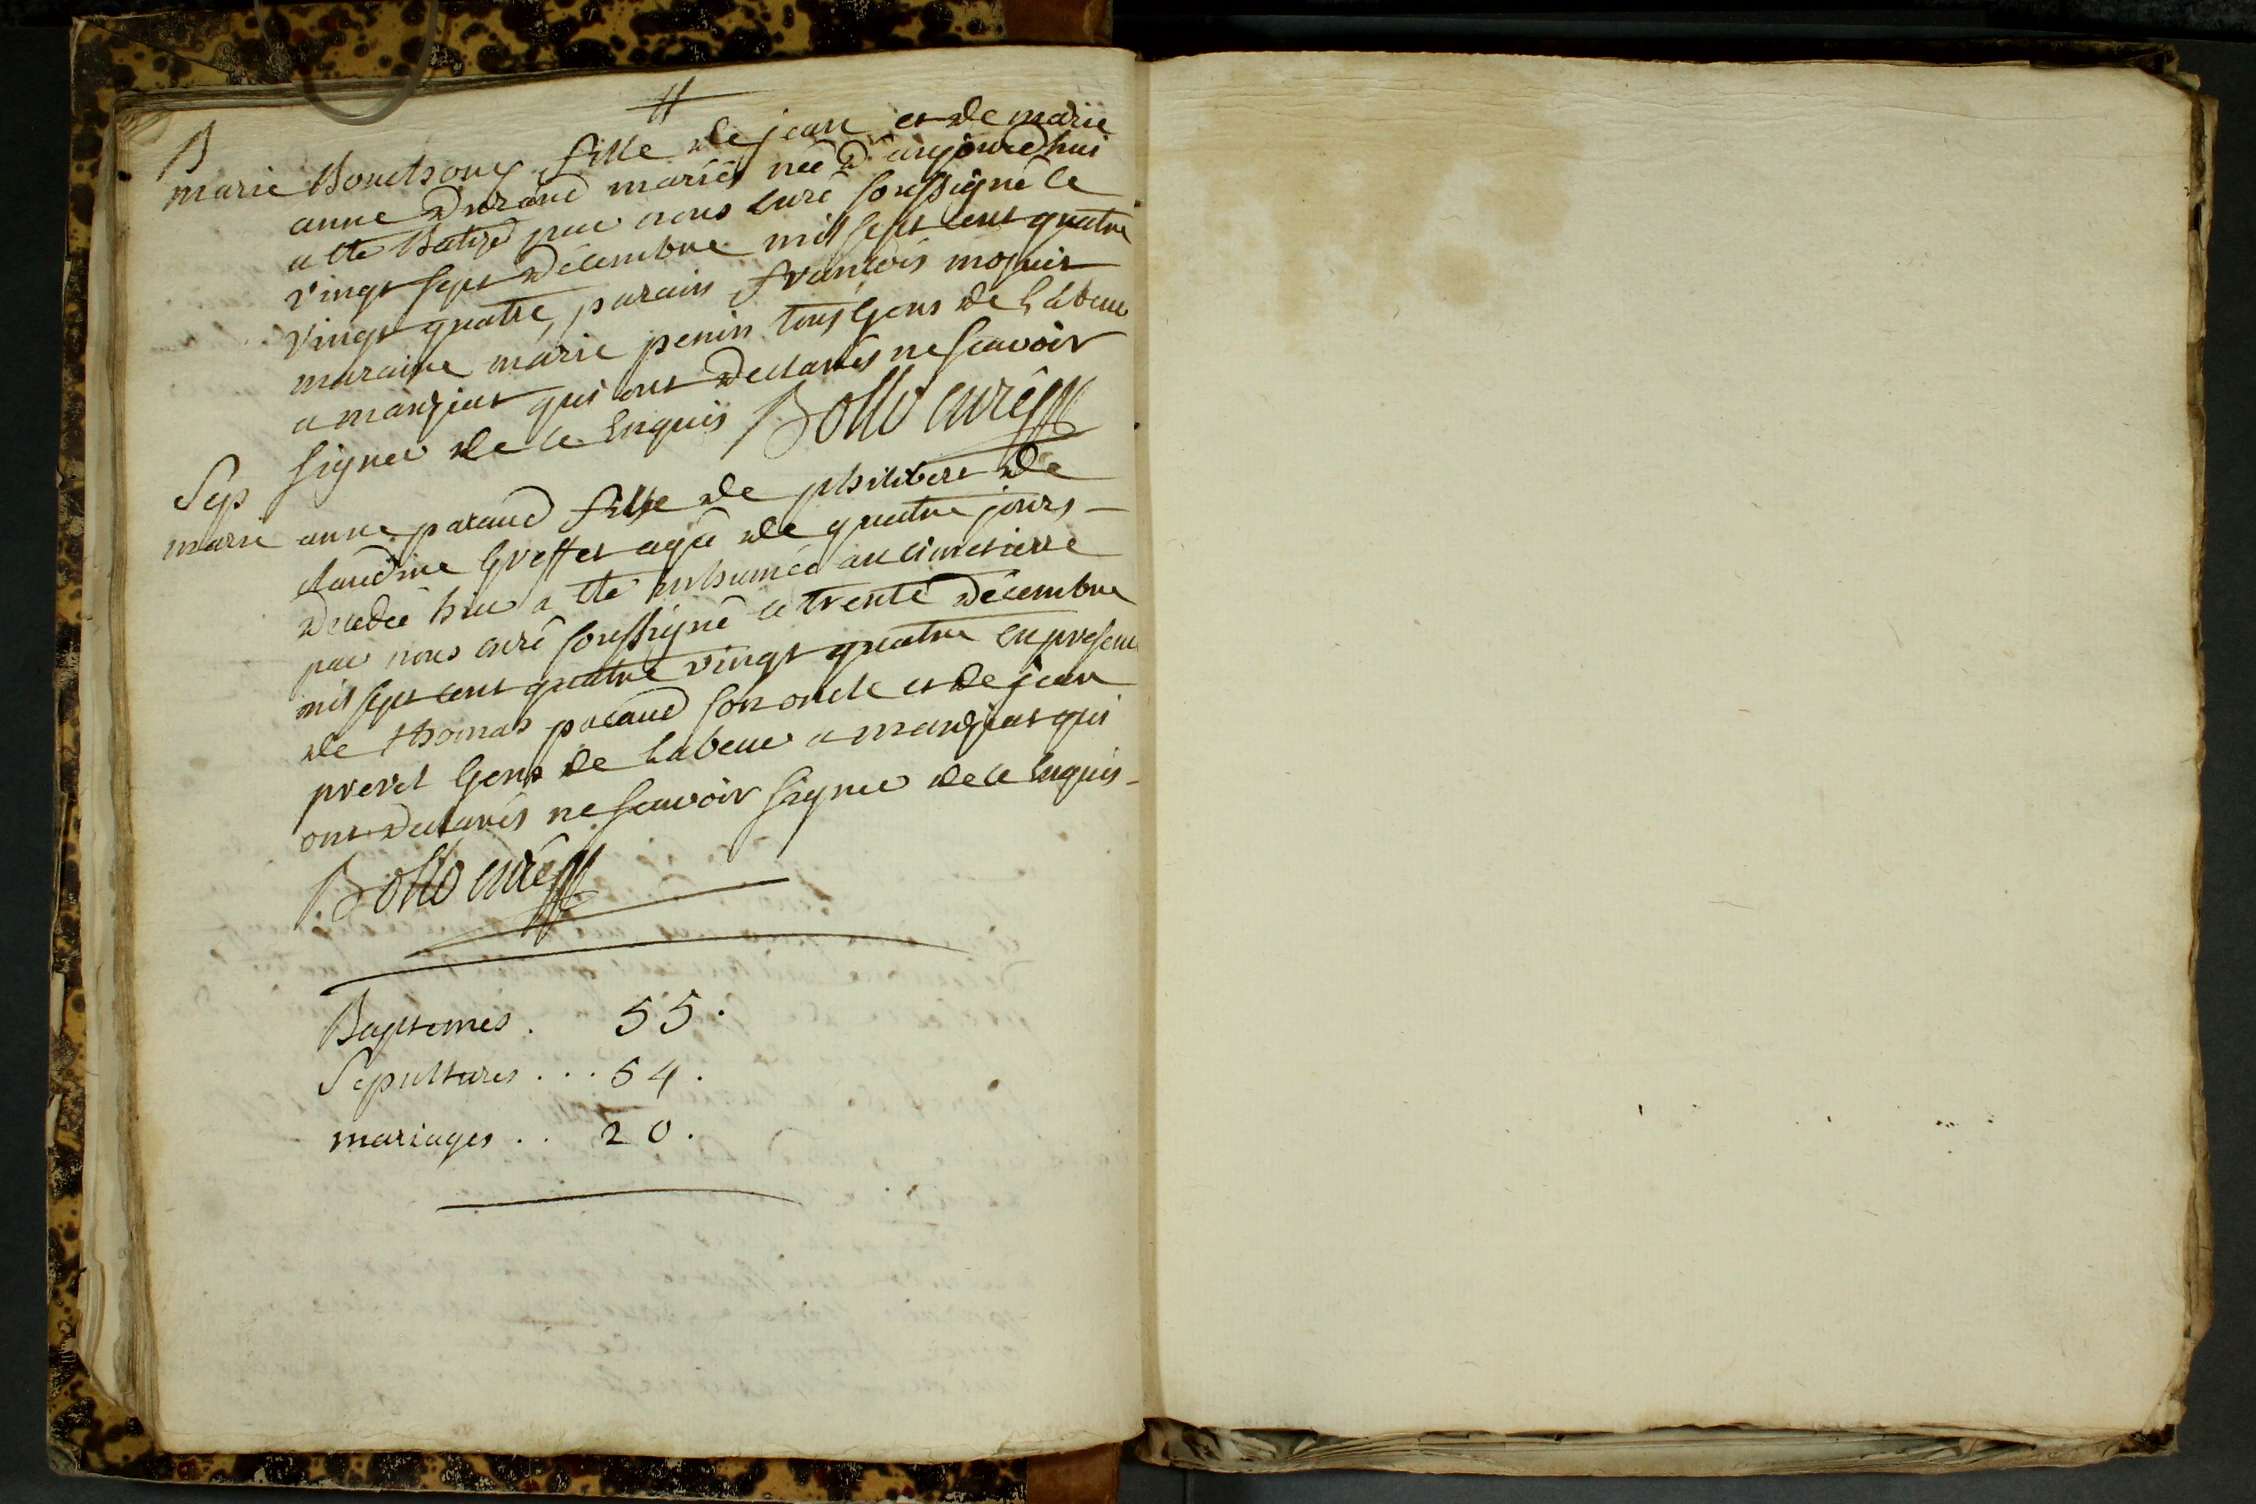 B
marie Bouchoux fille de jean et de marie
anne durand mariés née d'aujourdhui
a été Batizé par nous curé soussigné le
vingt sept décembre mil sept cent quatre
vingt quatre, parain françois moguet
maraine marie penin tous gens de Labeur
a marziat qui ont declarés ne scavoir
signer de ce Enquis Bollo curé
Sep
marie anne pacaud fille de philibert de
claudine Greffet agée de quatre jours
decedée hier a été inhumée au cimetierre
par nous curé soussigné ce trente décembre
mil sept cent quatre vingt quatre en presence
de thomas pacaud son oncle et de jean
prevel Gens de Labeur a marziat qui
ont declarés ne scavoir signer de ce Enquis
Bollo curé
Baptemes . 55.
Sepultures . . . 54.
mariages . . 20.